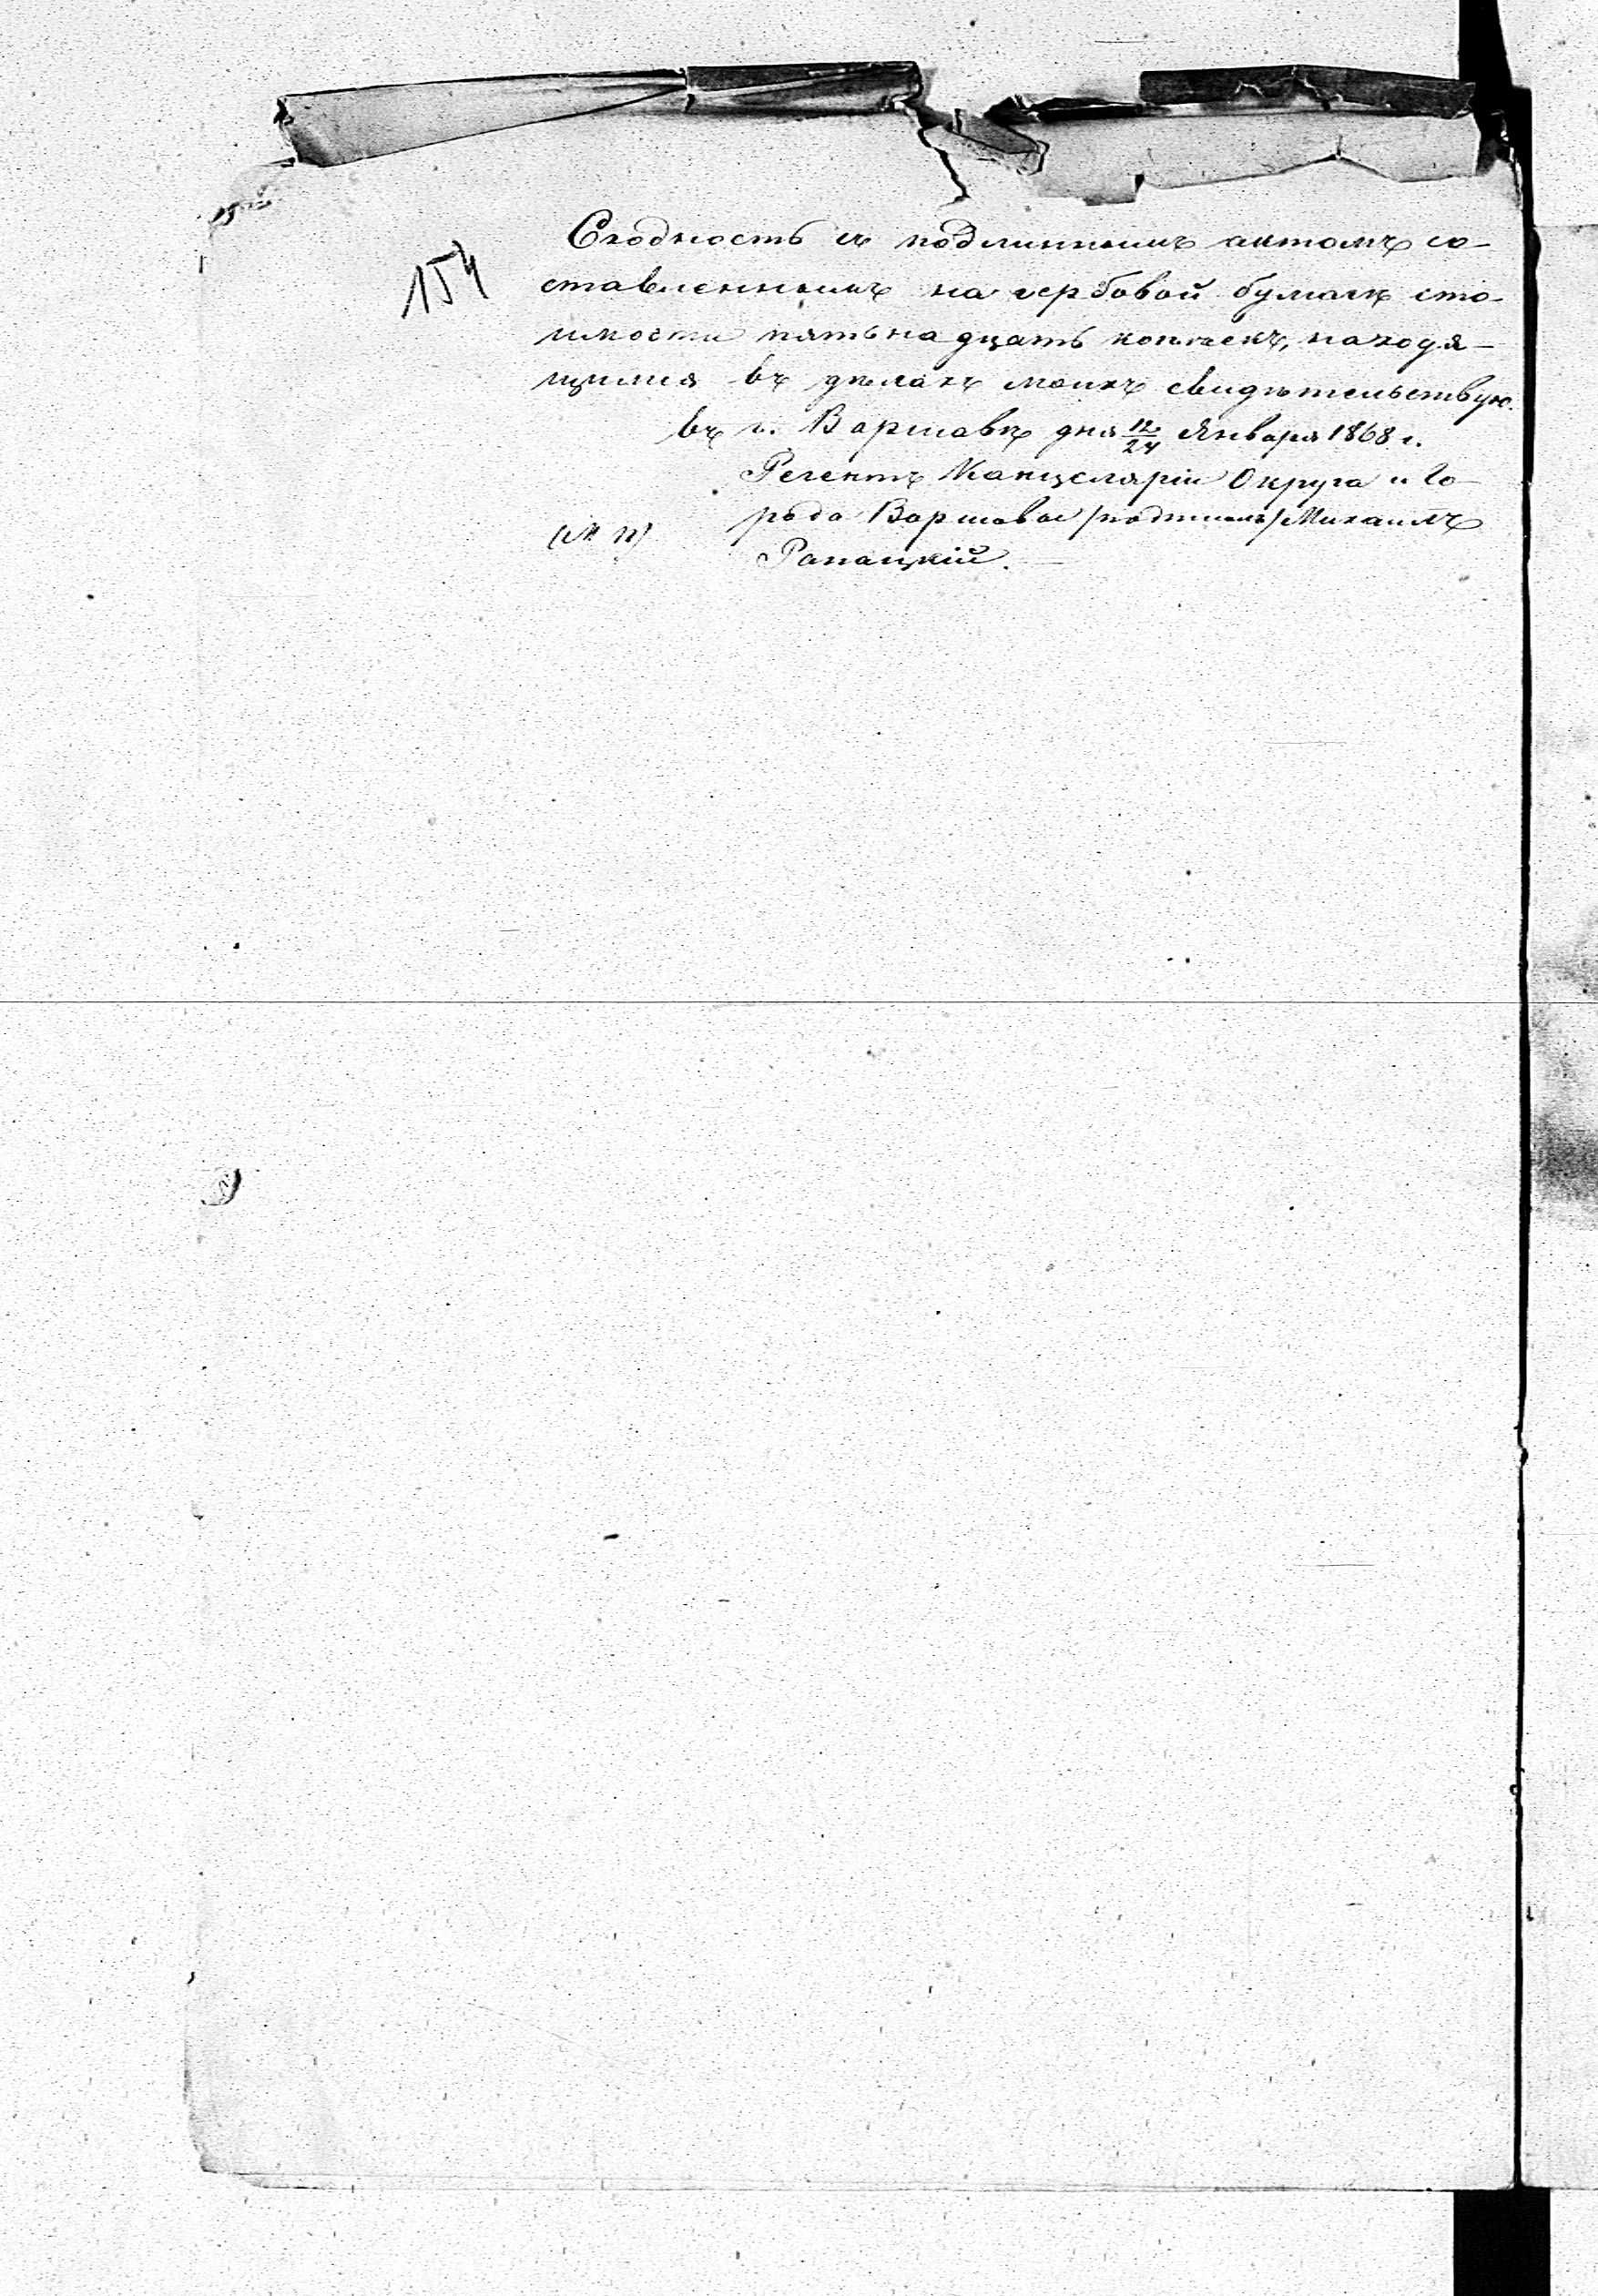 154
Сходность съ подлиннымъ актомъ со-
ставленнымъ на гербовой бумагѣ сто-
имости пятьнадцать копѣекъ, находя-
щимся въ дѣлахъ моихъ свидѣтельствую.
въ г. Варшавѣ дня 12/24 Января 1868 г.
Регентъ Канцеляріи Округа и Го-
рода Варшавы /подписалъ/ Михаилъ
(М П)
Рапацкій.